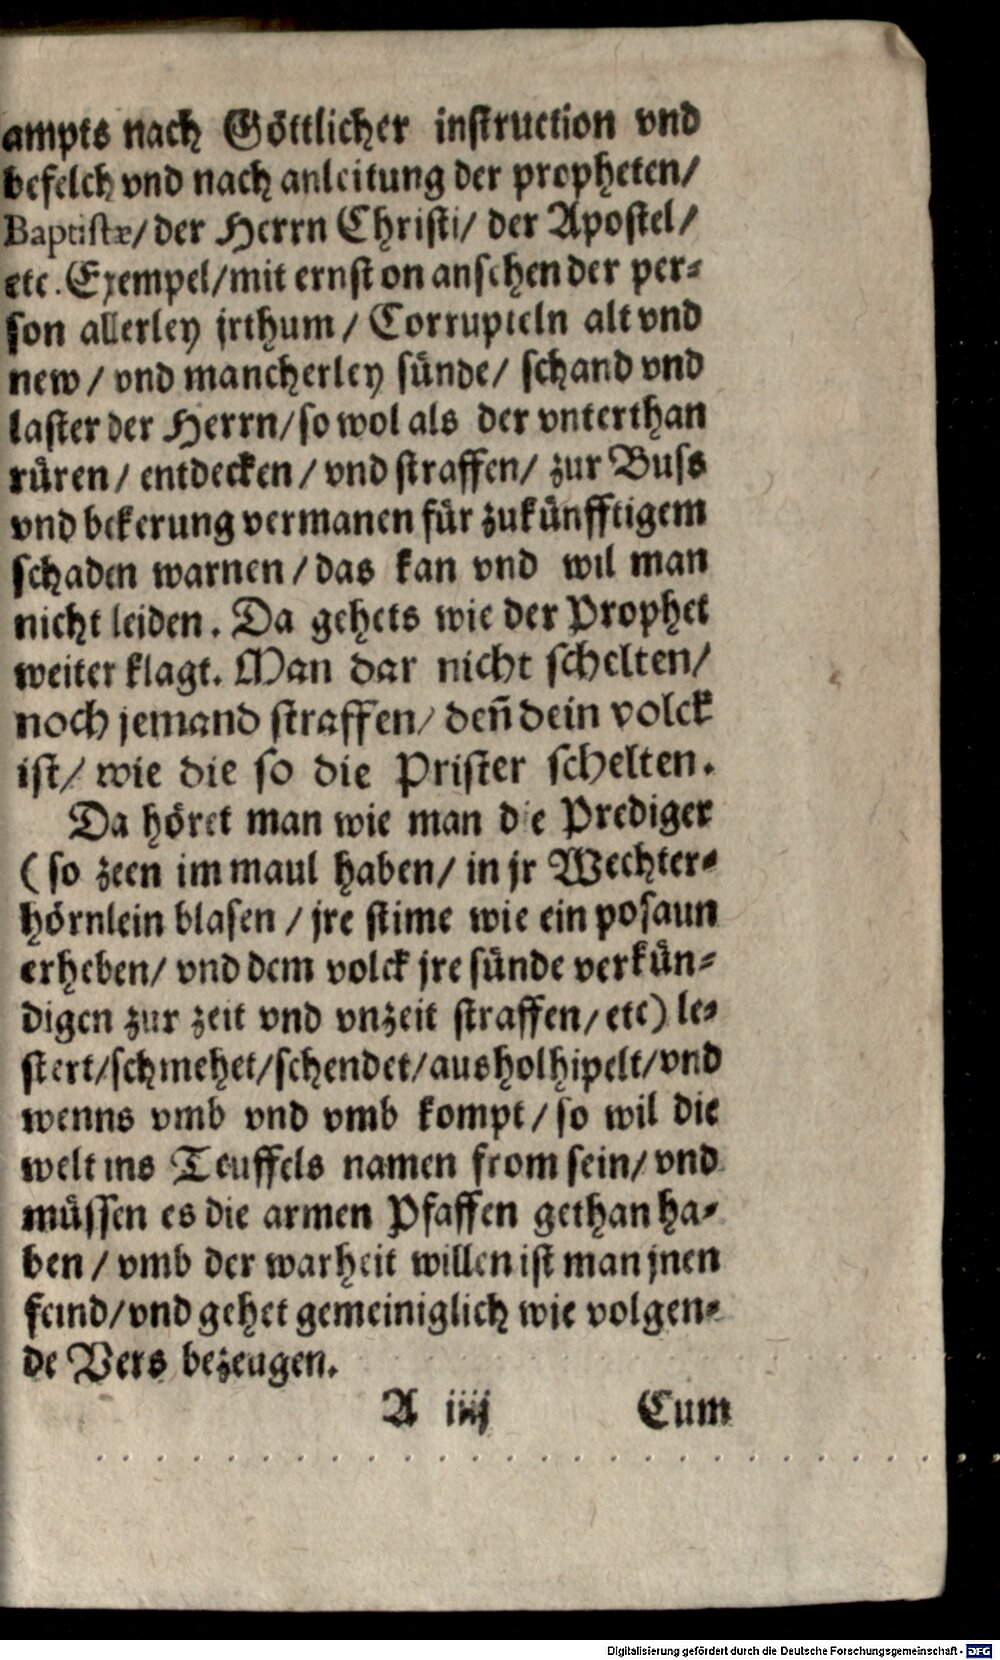 ampts nach Göttlicher instruction vnd
befelch vnd nach anleitung der propheten/
Baptistæ/ der Herrn Christi/ der Apostel/
etc. Exempel/ mit ernst on ansehen der per⸗
son allerley jrthum / Corrupteln alt vnd
new / vnd mancherley sünde/ schand vnd
laster der Herrn/ so wol als der vnterthan
rüren / entdecken / vnd straffen/ zur Buss
vnd bekerung vermanen für zukünfftigem
schaden warnen / das kan vnd wil man
nicht leiden. Da gehets wie der Prophet
weiter klagt. Man dar nicht schelten/
noch jemand straffen/ deñ dein volck
ist/ wie die so die Prister schelten.
Da höret man wie man die Prediger
( so zeen im maul haben/ in jr Wechter⸗
hörnlein blasen / jre stime wie ein posaun
erheben/ vnd dem volck jre sünde verkün⸗
digen zur zeit vnd vnzeit straffen/ etc) le⸗
stert/ schmehet/ schendet/ ausholhipelt/ vnd
wenns vmb vnd vmb kompt / so wil die
welt ins Teuffels namen from sein/ vnd
müssen es die armen Pfaffen gethan ha⸗
ben / vmb der warheit willen ist man jnen
feind/ vnd gehet gemeiniglich wie volgen⸗
de Vers bezeugen.
A iiij Cum
Digitalisierung gefördert durch die Deutsche Forschungsgemeinschaft - DFG